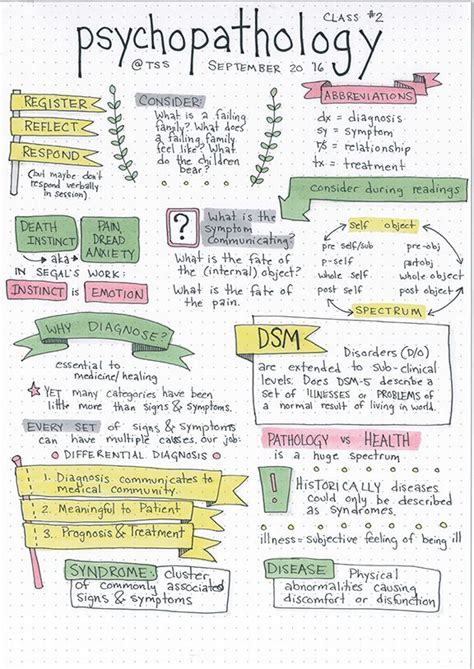 CLASS #2
psychopathology
@TSS SEPTEMBER 20 '16
REGISTER
REFLECT
RESPOND
(but maybe don't
respond verbally
in session)
CONSIDER:
What is a failing
family? What does
a failing family
feel like? What
do the children
bear?
ABBREVIATIONS
dx = diagnosis
sy = symptom
rs = relationship
tx = treatment
consider during readings
DEATH
INSTINCT
PAIN,
DREAD
ANXIETY
aka
IN SEGAL'S WORK:
INSTINCT is EMOTION
?
What is the
symptom
communicating?
What is the fate of
the (internal) object?
What is the fate of
the pain.
self object
pre self/sub pre-obj
p-self partobj
whole self whole object
post self post object
SPECTRUM
WHY DIAGNOSE?
essential to
medicine/healing
YET many categories have been
little more than signs & symptoms.
EVERY SET of signs & symptoms
can have multiple causes. our job:
DIFFERENTIAL DIAGNOSIS
1. Diagnosis communicates to
medical community.
2. Meaningful to Patient
3. Prognosis & Treatment
SYNDROME: cluster
of commonly associated
signs & symptoms
DSM
Disorders (D/O)
are extended to sub-clinical
levels. Does DSM-5 describe a
set of ILLNESSES or PROBLEMS of
a normal result of living in world.
PATHOLOGY vs HEALTH
is a huge spectrum
!
HISTORICALLY diseases
could only be described
as syndromes.
illness = subjective feeling of being ill
DISEASE: Physical
abnormalities causing
discomfort or disfunction